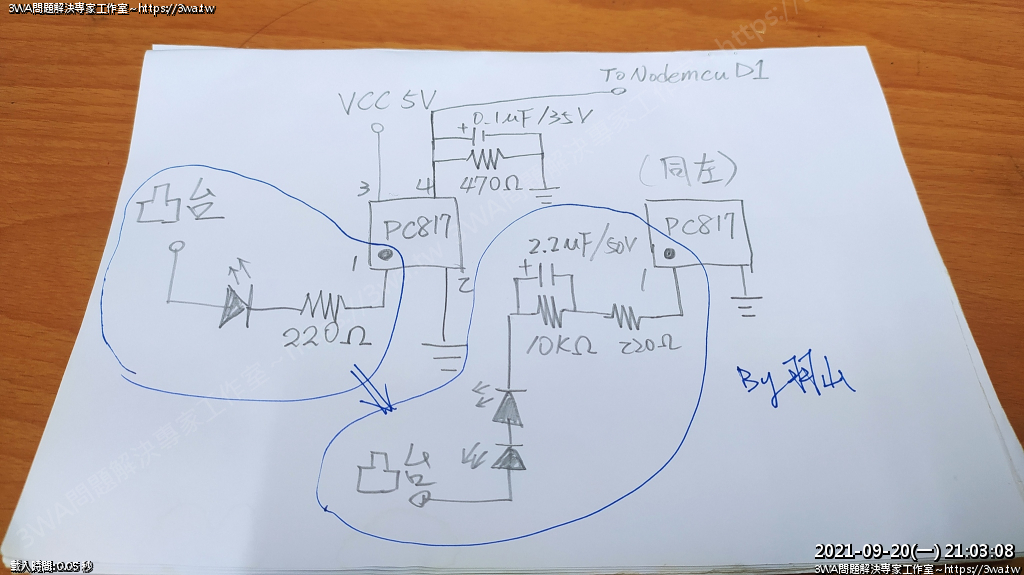 3WA問題解決專家工作室~https://3wa.tw
To Nodemcu D1
VCC 5V
+ 0.1uF/35V
470Ω
3 4
PC817
1 2
凸台
220Ω
(同左)
PC817
1
2.2uF/50V
+
10KΩ 220Ω
凸台
By 羽山
2021-09-20(一) 21:03:08
載入時間: 0.05 秒
3WA問題解決專家工作室~https://3wa.tw